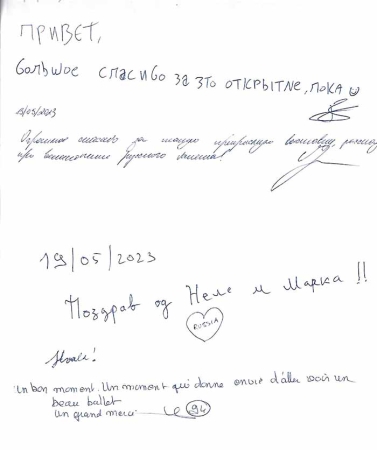 ПРИВЕТ,
большое спасибо за это открытие, пока
19/05/2023
Огромное спасибо за такую прекрасную
при
19/05/2023
Поздрав од Неле и Марка !!
RUSSIA
Hvala!
Un bon moment. Un moment qui donne envie d'aller voir un
beau ballet
Un grand merci
94